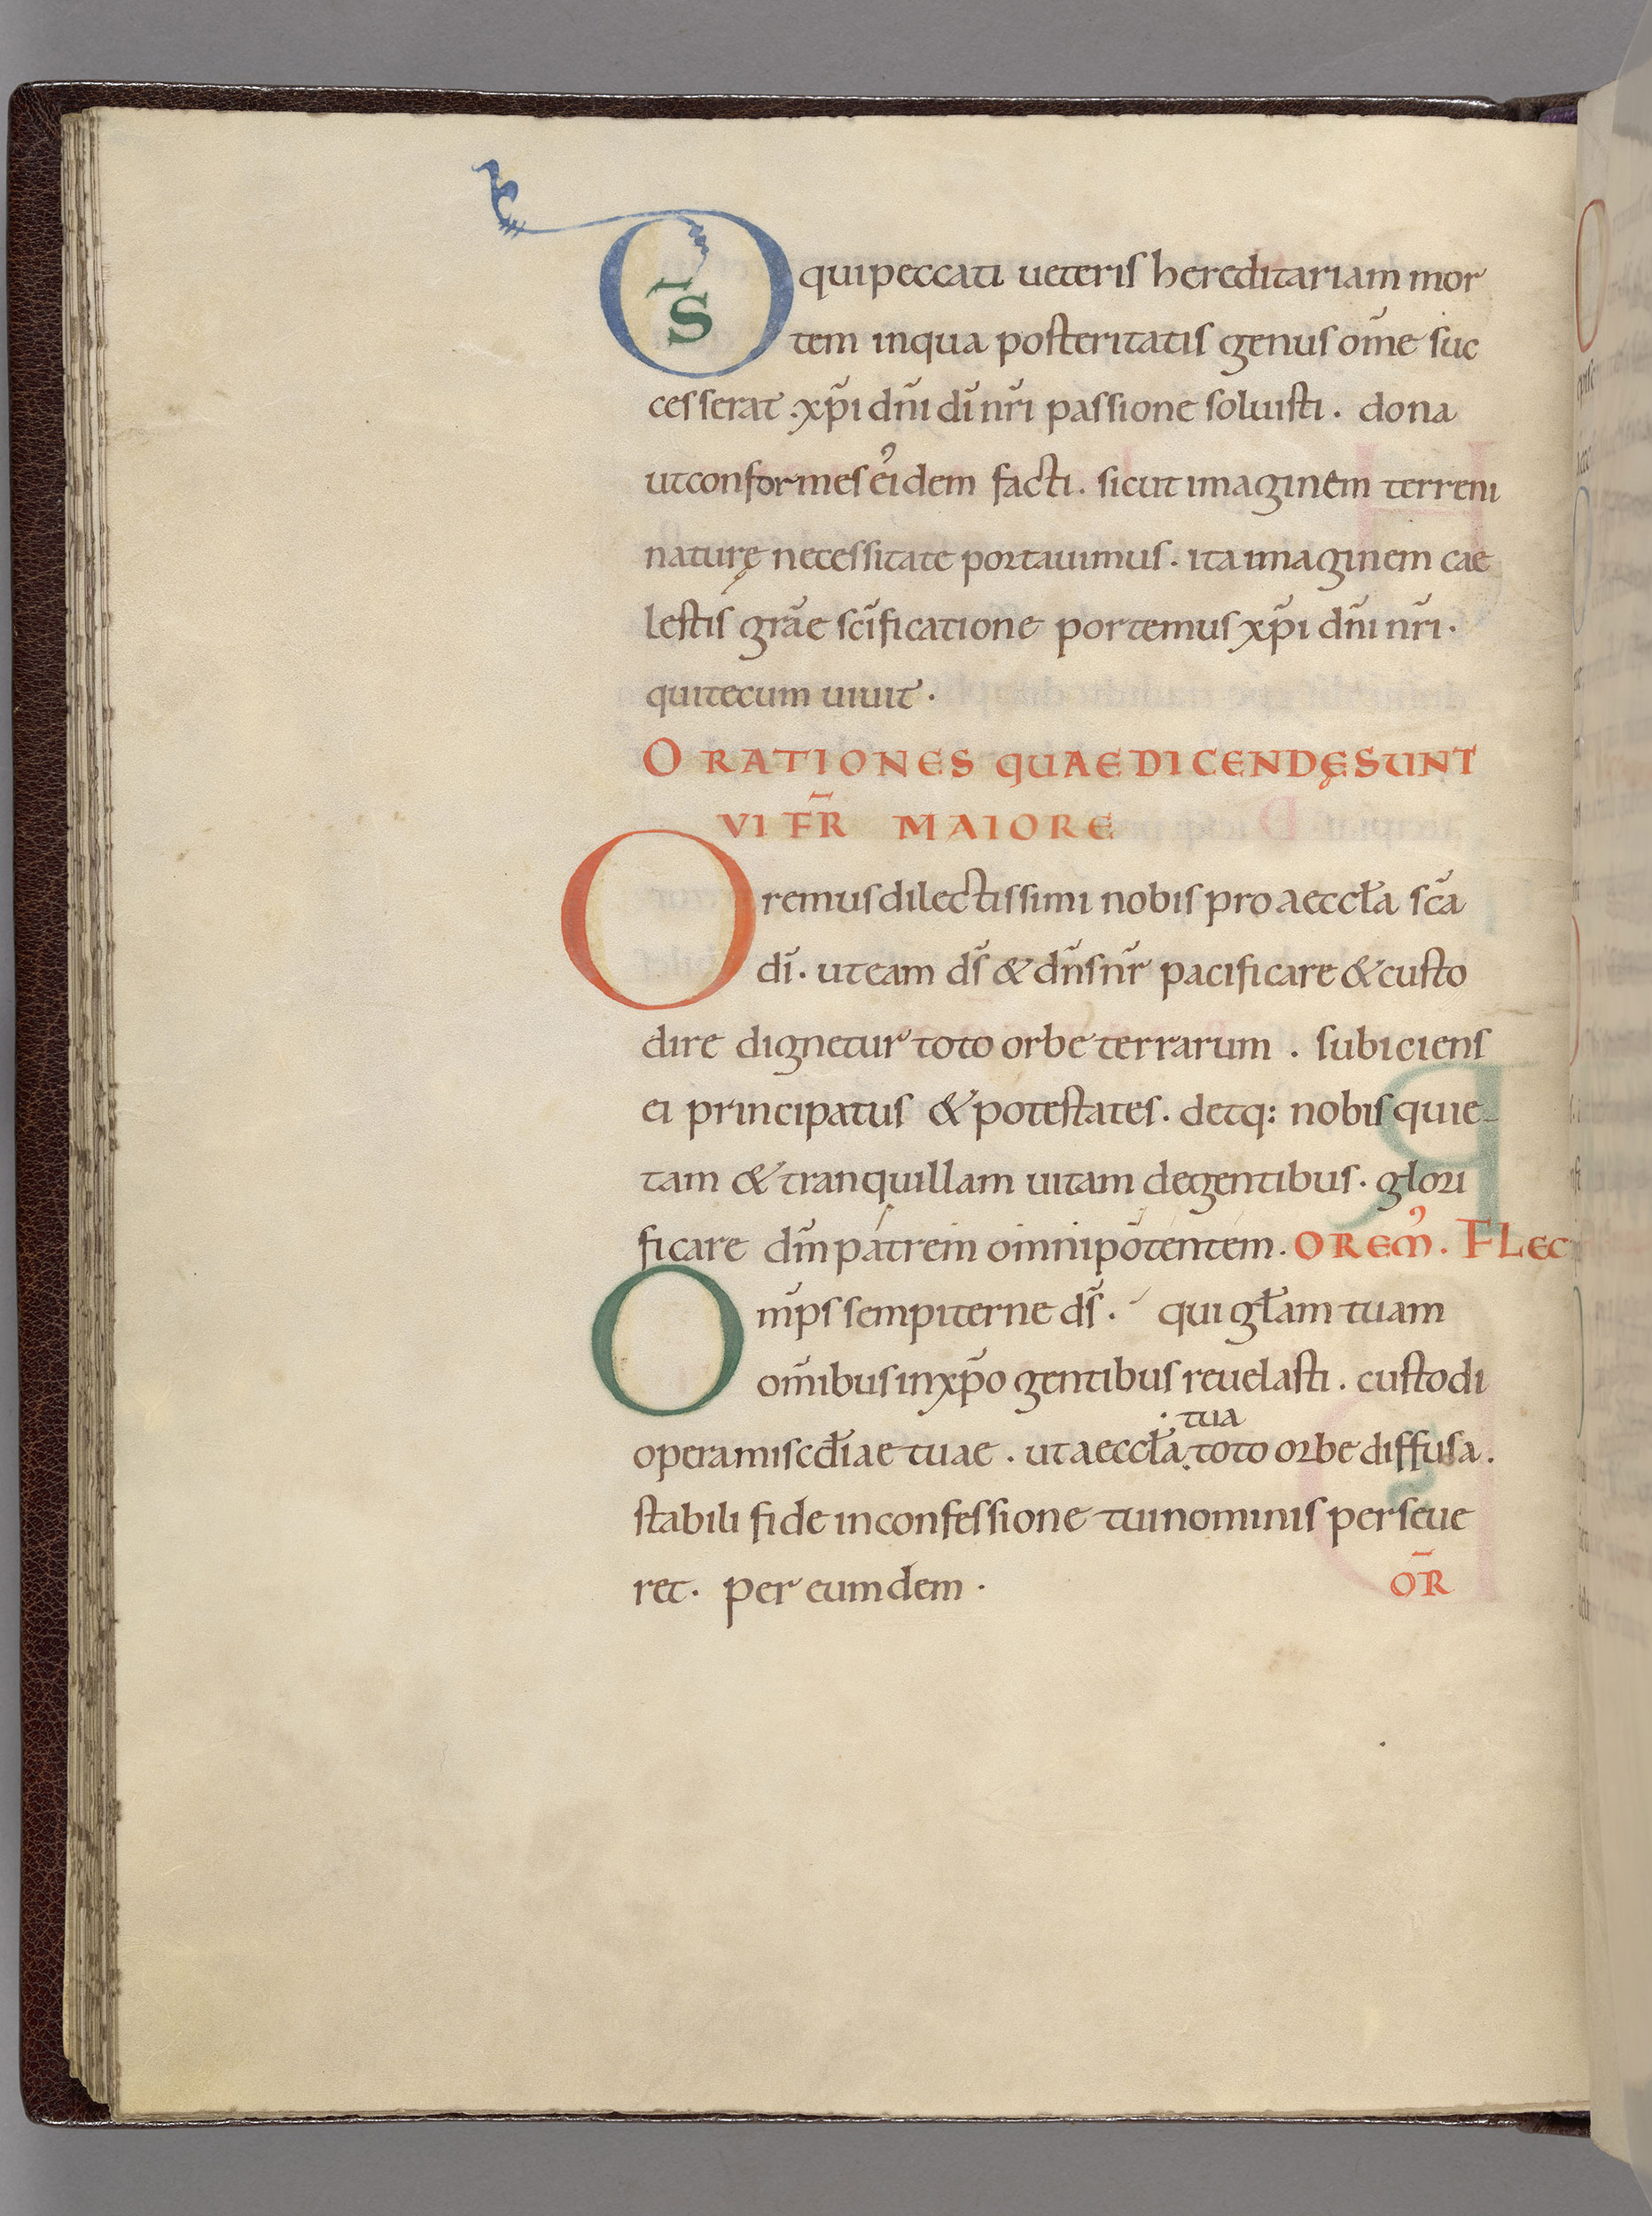 D̄S qui peccati ueteris hereditariam mor
tem inqua posteritatis genus om̄e suc
cesserat. xp̄i dn̄i dī nr̄i passione soluisti. dona
ut conformes eidem facti. sicut imaginem terreni
naturę necessitate portauimus. ita imaginem cae
lestis grāe sc̄ificatione portemus xp̄i dn̄i nr̄i.
qui tecum uiuit.
ORATIONES QUAE DICENDĘ SUNT
VI FR̄ MAIORE
Oremus dilectissimi nobis pro aeccła sc̄a
dī. ut eam ds̄ & dn̄s nr̄ pacificare & custo
dire dignetur toto orbe terrarum. subiciens
ei principatus & potestates. detq: nobis quie-
tam & tranquillam uitam degentibus. glori
ficare dm̄ patrem omnipotentem. OREM̄. FLEC
Om̄ps sempiterne ds̄. qui głam tuam
om̄ibus in xp̄o gentibus reuelasti. custodi
tua
opera miscđiae tuae. ut aeccła toto orbe diffusa.
stabili fide in confessione tui nominis perseue
ret. per eumdem. OR̄